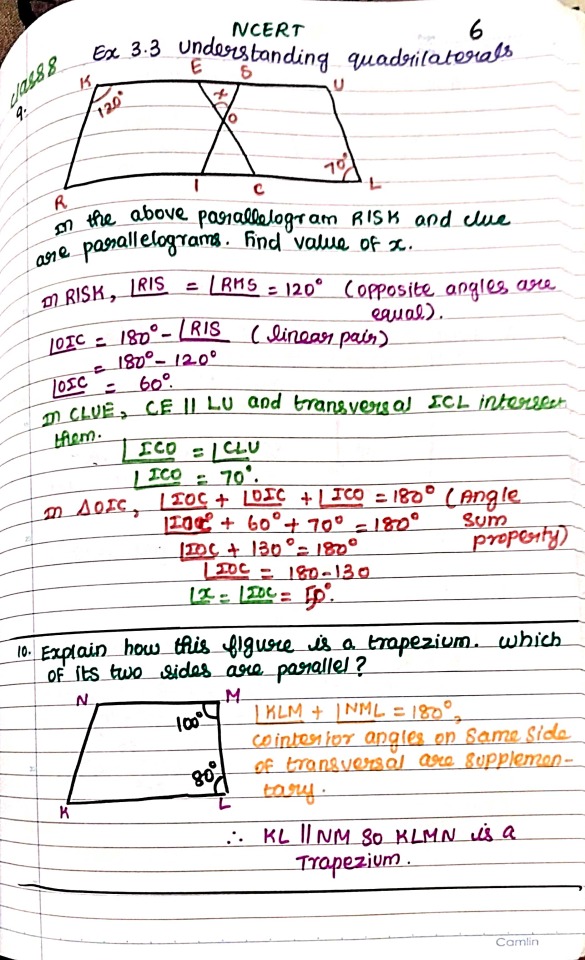 NCERT 6
Ex 3.3 Understanding quadrilaterals
class 8
9.
K E S U
120°
x
O
70°
R I C L
In the above parallelogram RISK and clue
are parallelograms. Find value of x.
In RISK, ∠RIS = ∠RKS = 120° (opposite angles are
equal).
∠OIC = 180° - ∠RIS (linear pair)
= 180° - 120°
∠OIC = 60°.
In CLUE, CE || LU and transversal ICL intersect
them.
∠ICO = ∠CLU
∠ICO = 70°.
In ΔOIC, ∠IOC + ∠OIC + ∠ICO = 180° (Angle
sum
property)
∠IOC + 60° + 70° = 180°
∠IOC + 130° = 180°
∠IOC = 180-130
∠x = ∠IOC = 50°.
10. Explain how this figure is a trapezium. Which
of its two sides are parallel?
N M
100°
80°
K L
∠KLM + ∠NML = 180°,
cointerior angles on same side
of transversal are supplemen-
tary.
∴ KL || NM so KLMN is a
Trapezium.
Camlin